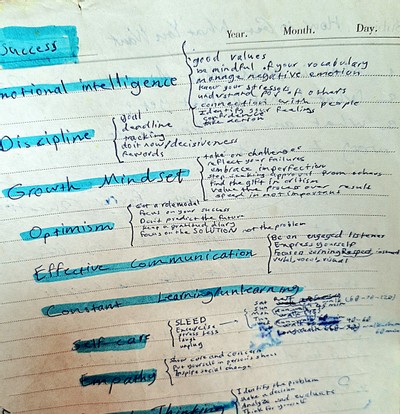 Year. Month. Day.
Success
good values
be mindful of your vocabulary
manage negative emotion
Know your stressors
understand POV of others
connection with people
Identify your feelings
confidence
take action
motional intelligence
Discipline
goal
deadline
tracking
do it now/decisiveness
Rewards
Growth Mindset
take on challenges
reflect your failures
embrace imperfection
stop seeking approval from others
find the gift in critism
value the process over result
speed is not important
Optimism
Get a rolemodel
Focus on your success
Don't predict the future
keep a gratitud diary
Focus on the SOLUTION not the problem
Effective Communication
Be an engaged listener
Express yourself
Focus on earning Respect, instead
verbal, vocal, visual
Constant Learning/unlearning
Self care
SLEEP
Exercise
stress less
laugh
unplug
Empathy
show care and concern
Put yourself in person's shoes
Inspire social change
Thinking
Identify the problem
make a decision
Analyze and evaluate
Think for yourself